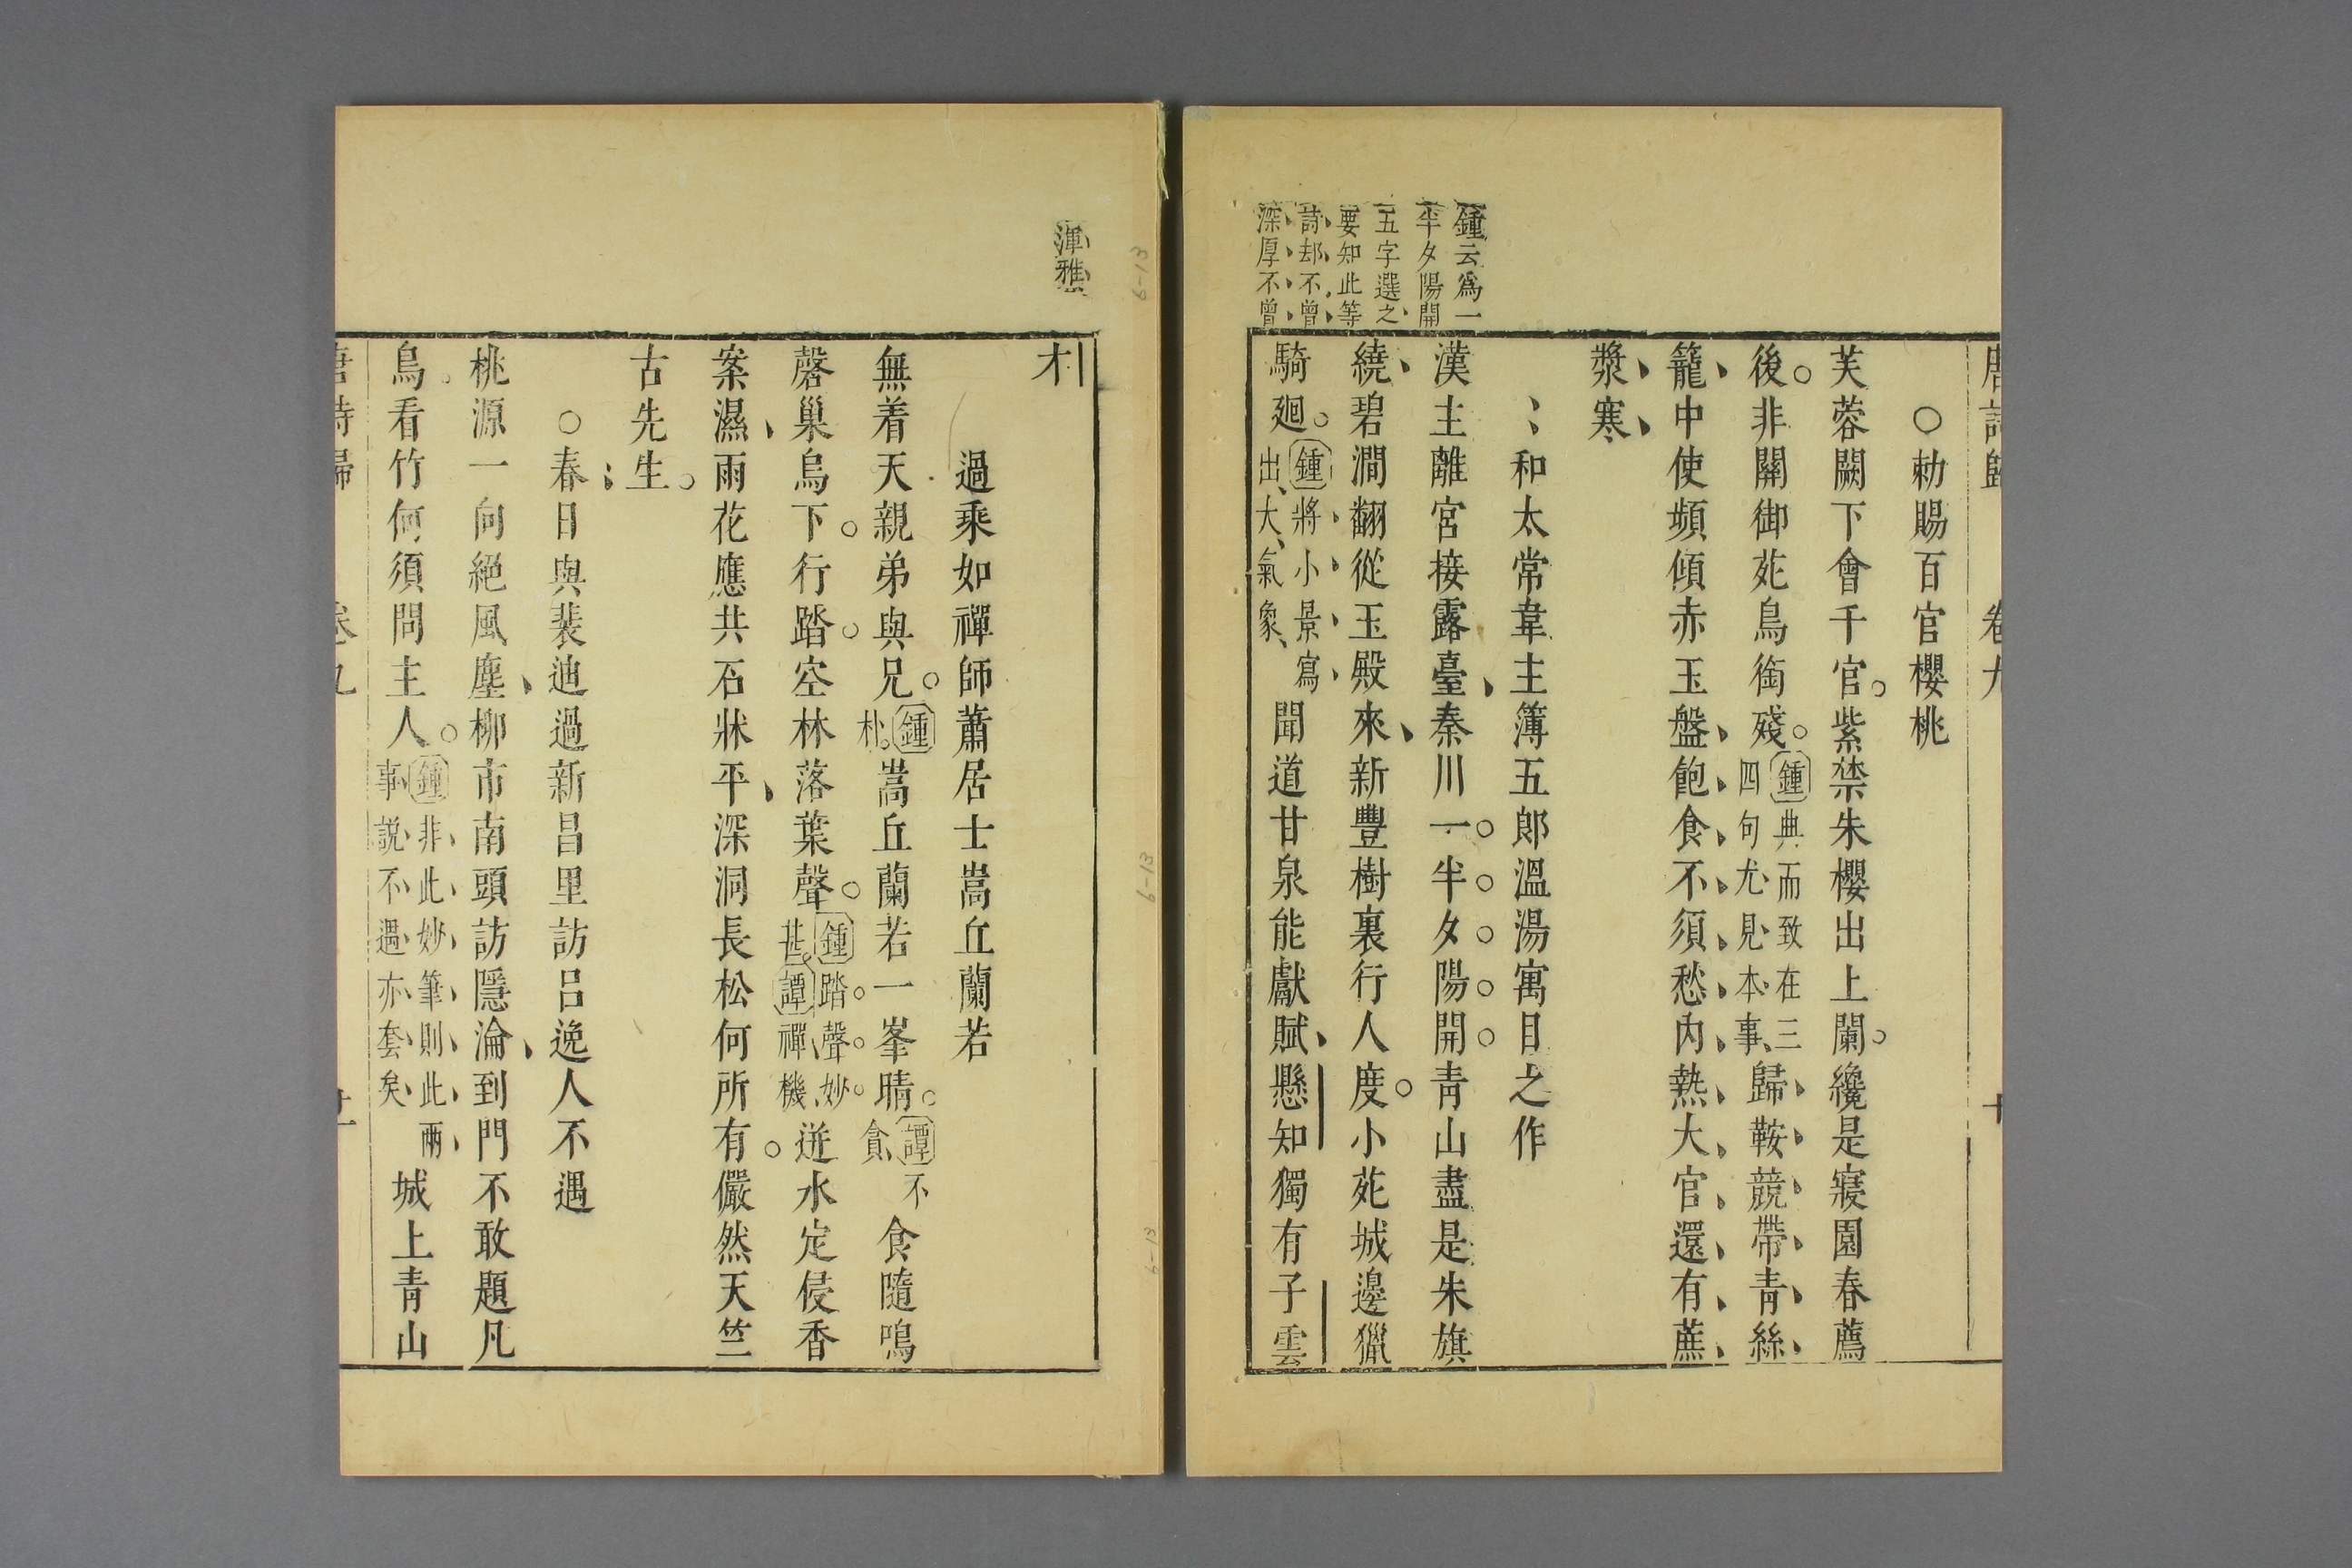 唐詩歸 卷九 十
○勅賜百官櫻桃
芙蓉闕下會千官紫禁朱櫻出上闌纔是寢園春薦
後非關御苑鳥銜殘鍾典而致在三四句尤見本事歸鞍競帶青絲
籠中使頻傾赤玉盤飽食不須愁內熱大官還有蔗
漿寒
和太常韋主簿五郎溫湯寓目之作
漢主離宮接露臺秦川一半夕陽開青山盡是朱旗
繞碧澗翻從玉殿來新豐樹裏行人度小苑城邊獵
騎廻鍾將小景寫出大氣象聞道甘泉能獻賦懸知獨有子雲
鍾云爲一
半夕陽開
五字選之
要知此等
詩却不曾
深厚不曾
渾雅
才
過乘如禪師蕭居士嵩丘蘭若
無着天親弟與兄鍾朴嵩丘蘭若一峯晴譚不貪食隨鳴
磬巢烏下行踏空林落葉聲鍾踏聲妙甚譚禪機迸水定侵香
案濕雨花應共石牀平深洞長松何所有儼然天竺
古先生
○春日與裴迪過新昌里訪呂逸人不遇
桃源一向絕風塵柳市南頭訪隱淪到門不敢題凡
鳥看竹何須問主人鍾非此妙筆則此兩事說不過亦套矣城上青山
唐詩歸 卷九